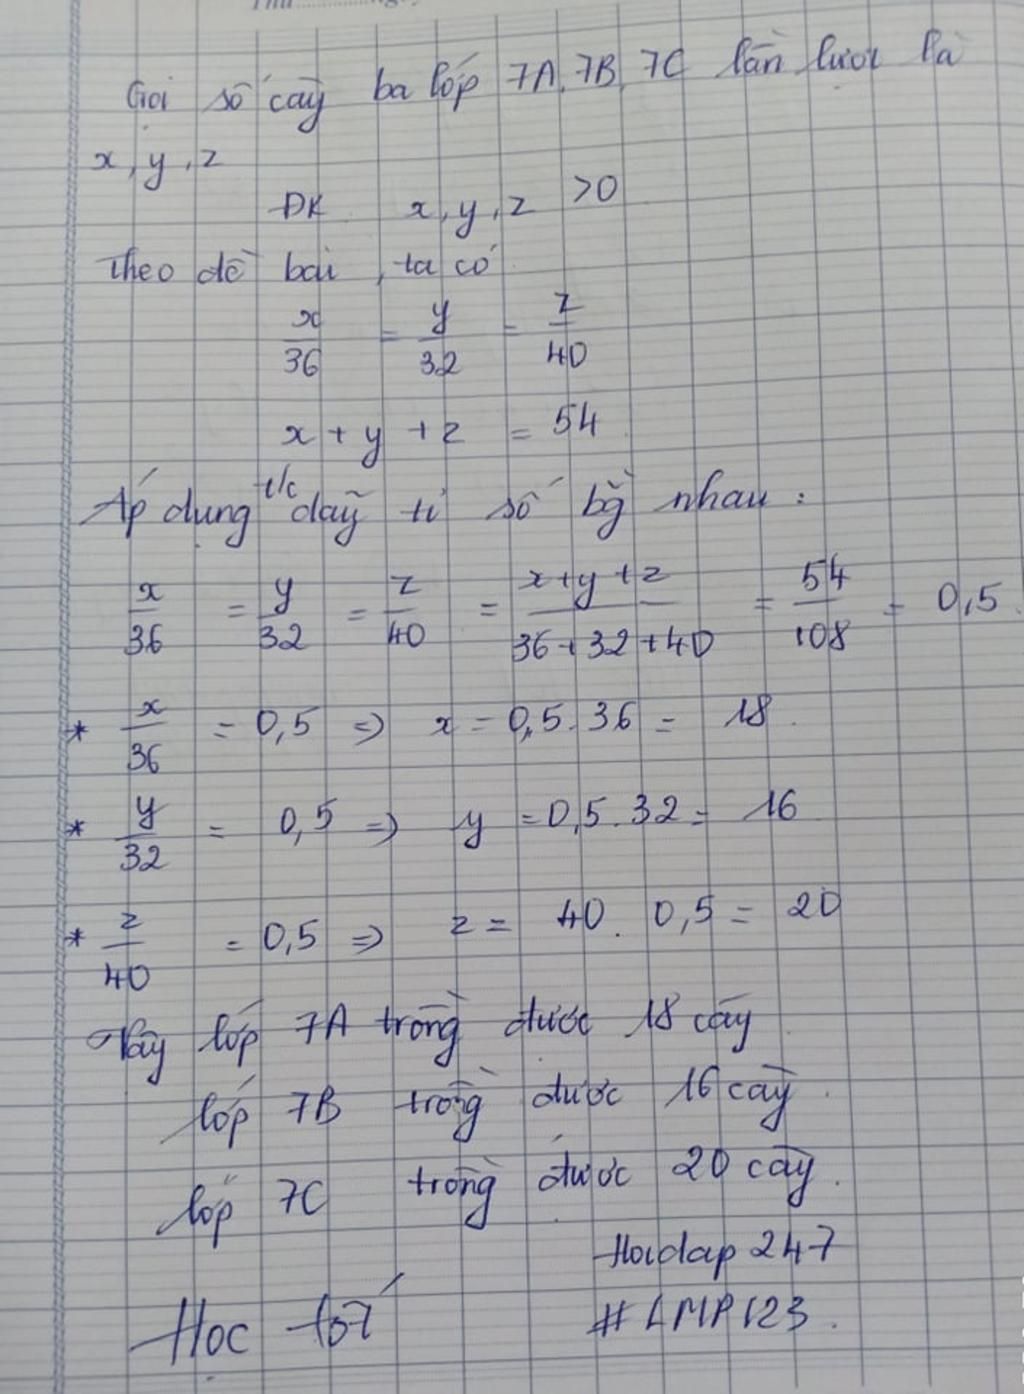 Gọi số cây ba lớp 7A, 7B, 7C lần lượt là
x, y, z
ĐK x, y, z >0
Theo đề bài, ta có
x/36 = y/32 = z/40
x + y + z = 54
Áp dụng t/c dãy tỉ số bg nhau :
x/36 = y/32 = z/40 = x+y+z/36+32+40 = 54/108 = 0,5
* x/36 = 0,5 => x = 0,5.36 = 18.
* y/32 = 0,5 => y = 0,5.32 = 16
* z/40 = 0,5 => z = 40. 0,5 = 20
Vậy lớp 7A trồng được 18 cây
lớp 7B trồng được 16 cây.
lớp 7C trồng được 20 cây.
Hoidap 247
Học tốt #LMP123.